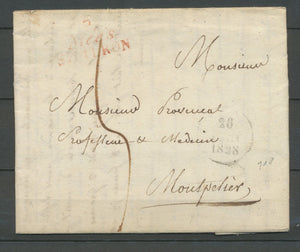 Monsieur
Monsieur Provençal
Professeur de Médecine
Montpelier
26
1828